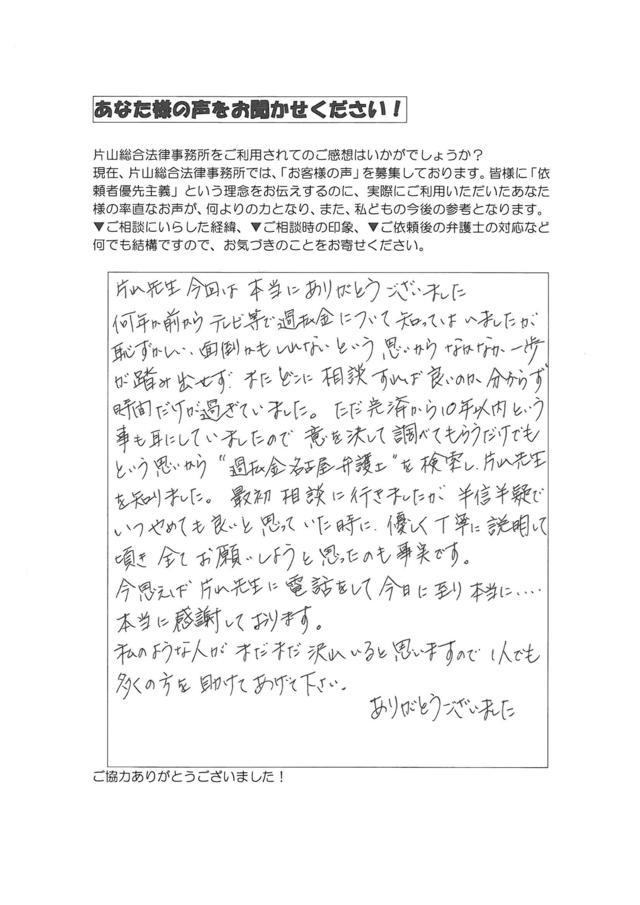 あなた様の声をお聞かせください！
片山総合法律事務所をご利用されてのご感想はいかがでしょうか？
現在、片山総合法律事務所では、「お客様の声」を募集しております。皆様に「依
頼者優先主義」という理念をお伝えするのに、実際にご利用いただいたあなた
様の率直なお声が、何よりの力となり、また、私どもの今後の参考となります。
▼ご相談にいらした経緯、▼ご相談時の印象、▼ご依頼後の弁護士の対応など
何でも結構ですので、お気づきのことをお寄せください。
片山先生 今回は 本当にありがとうございました
何年か前から テレビ等で過払金について 知ってはいましたが
恥ずかしい、面倒かもしれないという 思いから なかなか 一歩
が踏み出せず またどこに 相談 すれば良いのか 分からず
時間だけが過ぎていました。 ただ完済から10年以内という
事も耳にしていましたので 意を決して調べてもらうだけでも
という思いから "過払金 名古屋 弁護士"を検索し、片山先生
を知りました。 最初 相談に行きましたが 半信半疑で
いつやめても良いと思っていた時に、優しく丁寧に説明して
頂き 全てお願いしようと思ったのも事実です。
今思えば 片山先生に電話をして 今日に至り 本当に‥‥
本当に感謝しております。
私のような人が まだまだ沢山いると思いますので 1人でも
多くの方を助けてあげて下さい。
ありがとうございました
ご協力ありがとうございました！